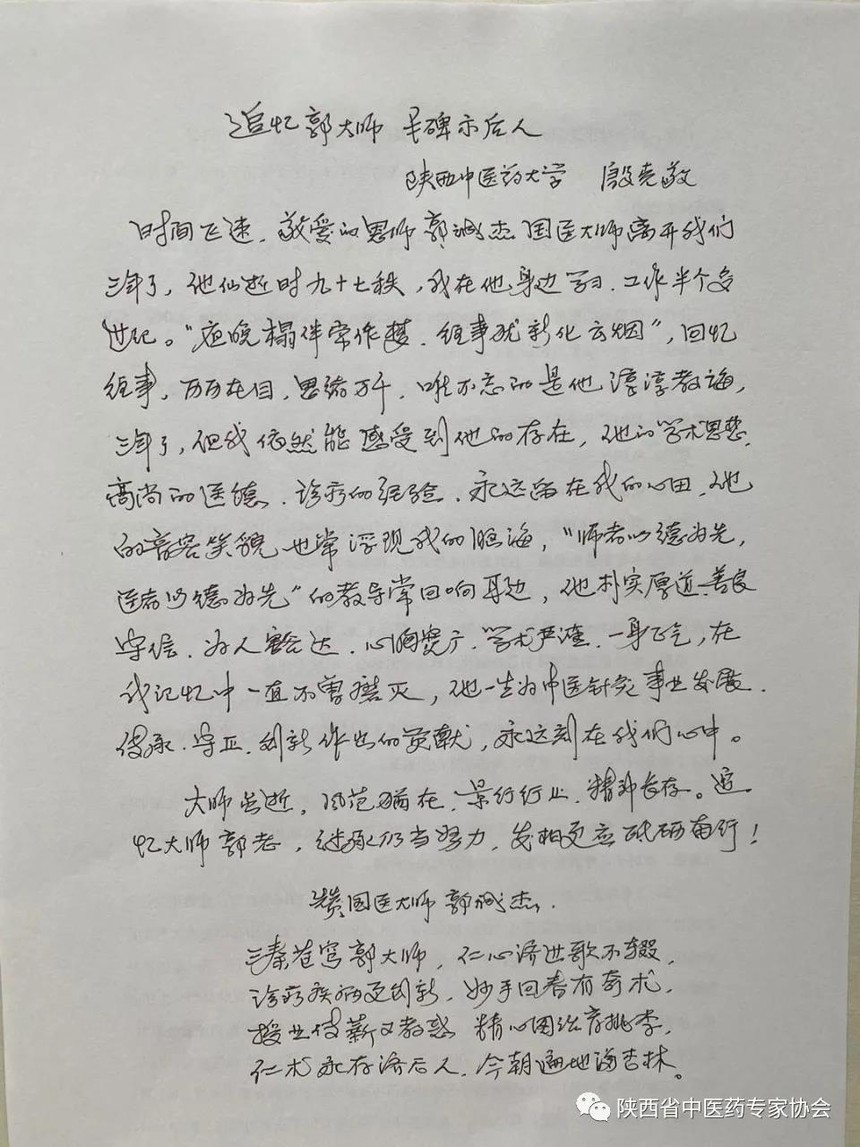 追忆郭大师 丰碑示后人
陕西中医药大学 殷克敬
时间飞速，敬爱的恩师郭诚杰国医大师离开我们
三年了，他仙逝时九十七秩，我在他身边学习、工作半个多
世纪。“夜晚榻伴常作梦，往事犹新化云烟”，回忆
往事，历历在目，思绪万千，唯不忘的是他谆谆教诲，
三年了，但我依然能感受到他的存在，他的学术思想，
高尚的医德、诊疗的经验，永远留在我的心田，他
的音容笑貌也常浮现我的脑海，“师者以德为先，
医者以德为先”的教导常回响耳边，他朴实厚道、善良
守信、为人豁达、心胸宽广、学术严谨、一身正气，在
我记忆中一直不曾磨灭，他一生为中医针灸事业发展、
传承、守正、创新作出的贡献，永远刻在我们心中。
大师虽逝，风范犹在，景行行止，精神长存。追
忆大师郭老，继承仍当努力，发扬更应砥砺前行！
赞国医大师郭诚杰
三秦苍穹郭大师，仁心济世歌不辍，
诊疗疾病更创新，妙手回春有奇术，
授业传薪又教惑 精心图治育桃李，
仁术永存济后人，今朝遍地满杏林。
陕西省中医药专家协会